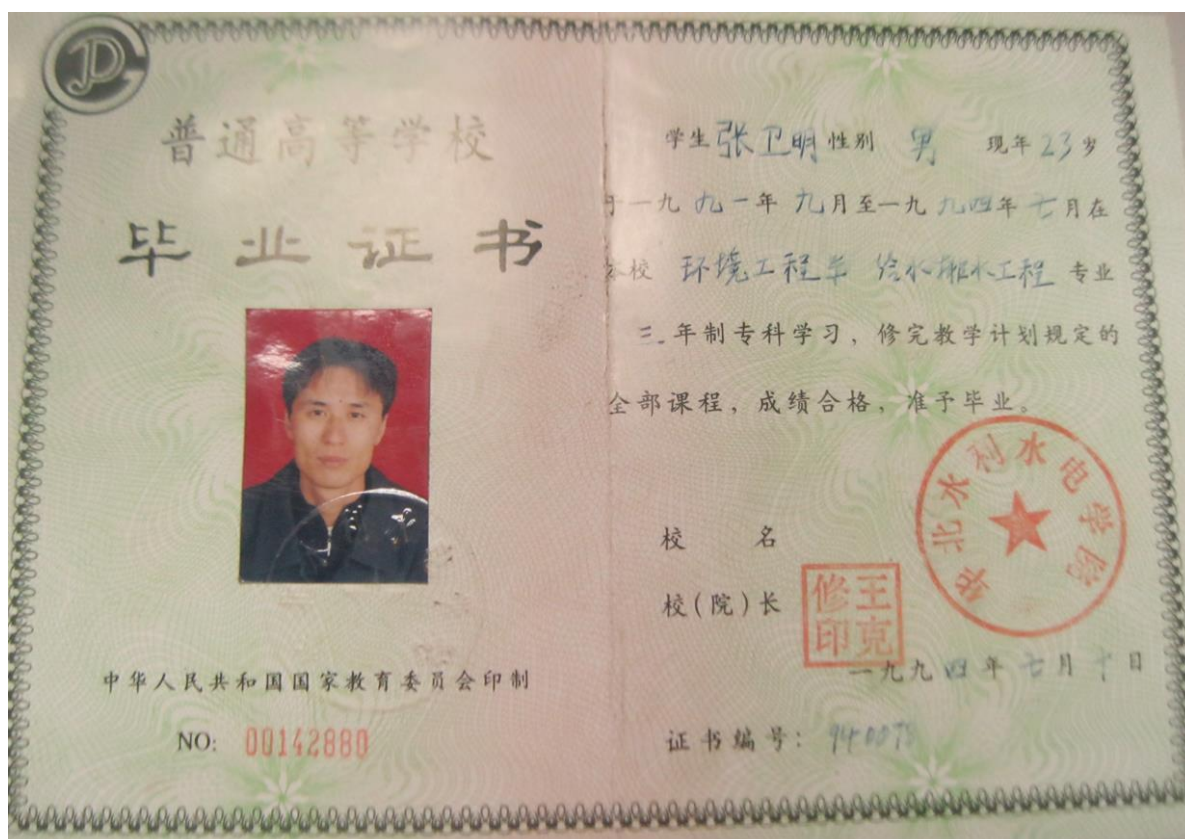 普通高等学校
毕业证书
中华人民共和国国家教育委员会印制
NO: 00142880
学生张卫明性别 男 现年23岁
于一九九一年九月至一九九四年七月在
本校 环境工程系 给水排水工程 专业
三年制专科学习，修完教学计划规定的
全部课程，成绩合格，准予毕业。
华北水利水电学院
校 名
校(院)长
王克
修印
一九九四年七月十日
证书编号：940078